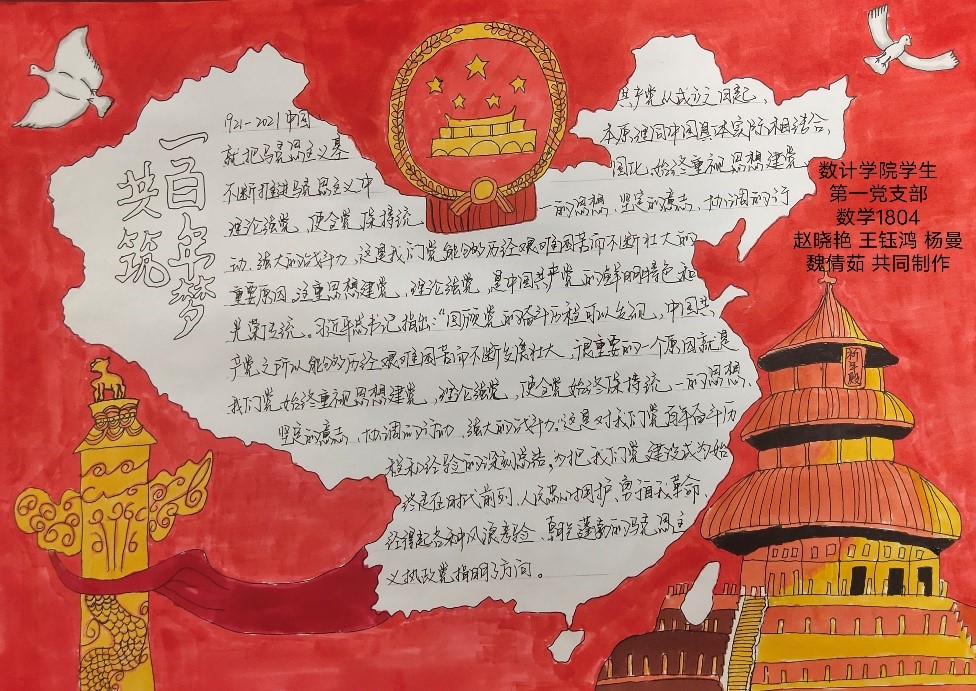 一百年梦
共筑
1921-2021中国
共产党从成立之日起、
就把马克思主义基
本原理同中国具体实际相结合,
不断推进马克思主义中
因此,始终重视思想建党、
理论强党,使全党保持统
一的思想、坚定的意志、协调的行
动、强大的战斗力,这是我们党能够历经艰难困苦而不断壮大的
重要原因。注重思想建党、理论强党,是中国共产党的鲜明特色和
光荣传统。习近平总书记指出:“回顾党的奋斗历程可以发现,中国共
产党之所以能够历经艰难困苦而不断发展壮大,很重要的一个原因就是
我们党始终重视思想建党、理论强党,使全党始终保持统一的思想、
坚定的意志、协调的行动、强大的战斗力。”这是对我们党百年奋斗历
程和经验的深刻总结,为把我们党建设成为始
终走在时代前列、人民衷心拥护、勇于自我革命、
经得起各种风浪考验、朝气蓬勃的马克思主
义执政党指明了方向。
数计学院学生
第一党支部
数学1804
赵晓艳 王钰鸿 杨曼
魏倩茹 共同制作
祈年殿